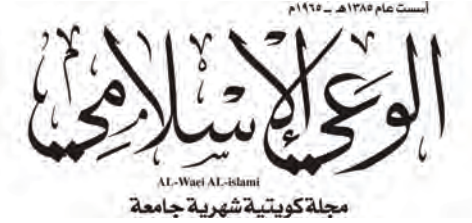 أسست عام ١٣٨٥هـ ــ ١٩٦٥م
الوَعَي الإِسْلَامِي
AL-Waei AL-islami
مجلة كويتية شهرية جامعة